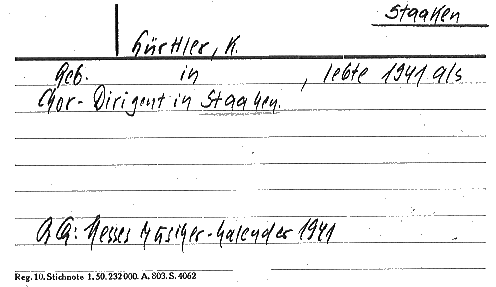 Staaken
K.
Geb. in , lebte 1941 als
Chor-Dirigent in Staaken.
Hesses Musiker-Kalender 1941
Reg. 10. Stichnote 1. 50. 232000. A. 803. S. 4062